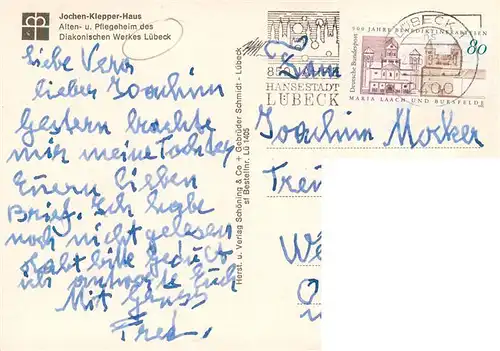 Jochen-Klepper-Haus
Alten- u. Pflegeheim des
Diakonischen Werkes Lübeck
Liebe Vera
lieber Joachim
Gestern brachte
mir meine Tochter
Euern lieben
Brief. Ich habe
noch nicht gelesen
habt bitte Geduld
ich antworte Euch
Mit Gruss
Fred.
Herst. u. Verlag Schöning & Co + Gebrüder Schmidt - Lübeck
Bestellnr. Lü 1405
HANSESTADT
LÜBECK
LÜBECK
900 JAHRE BENEDIKTINERABTEIEN
80
Deutsche Bundespost
MARIA LAACH UND BURSFELDE
Joachim Mocker